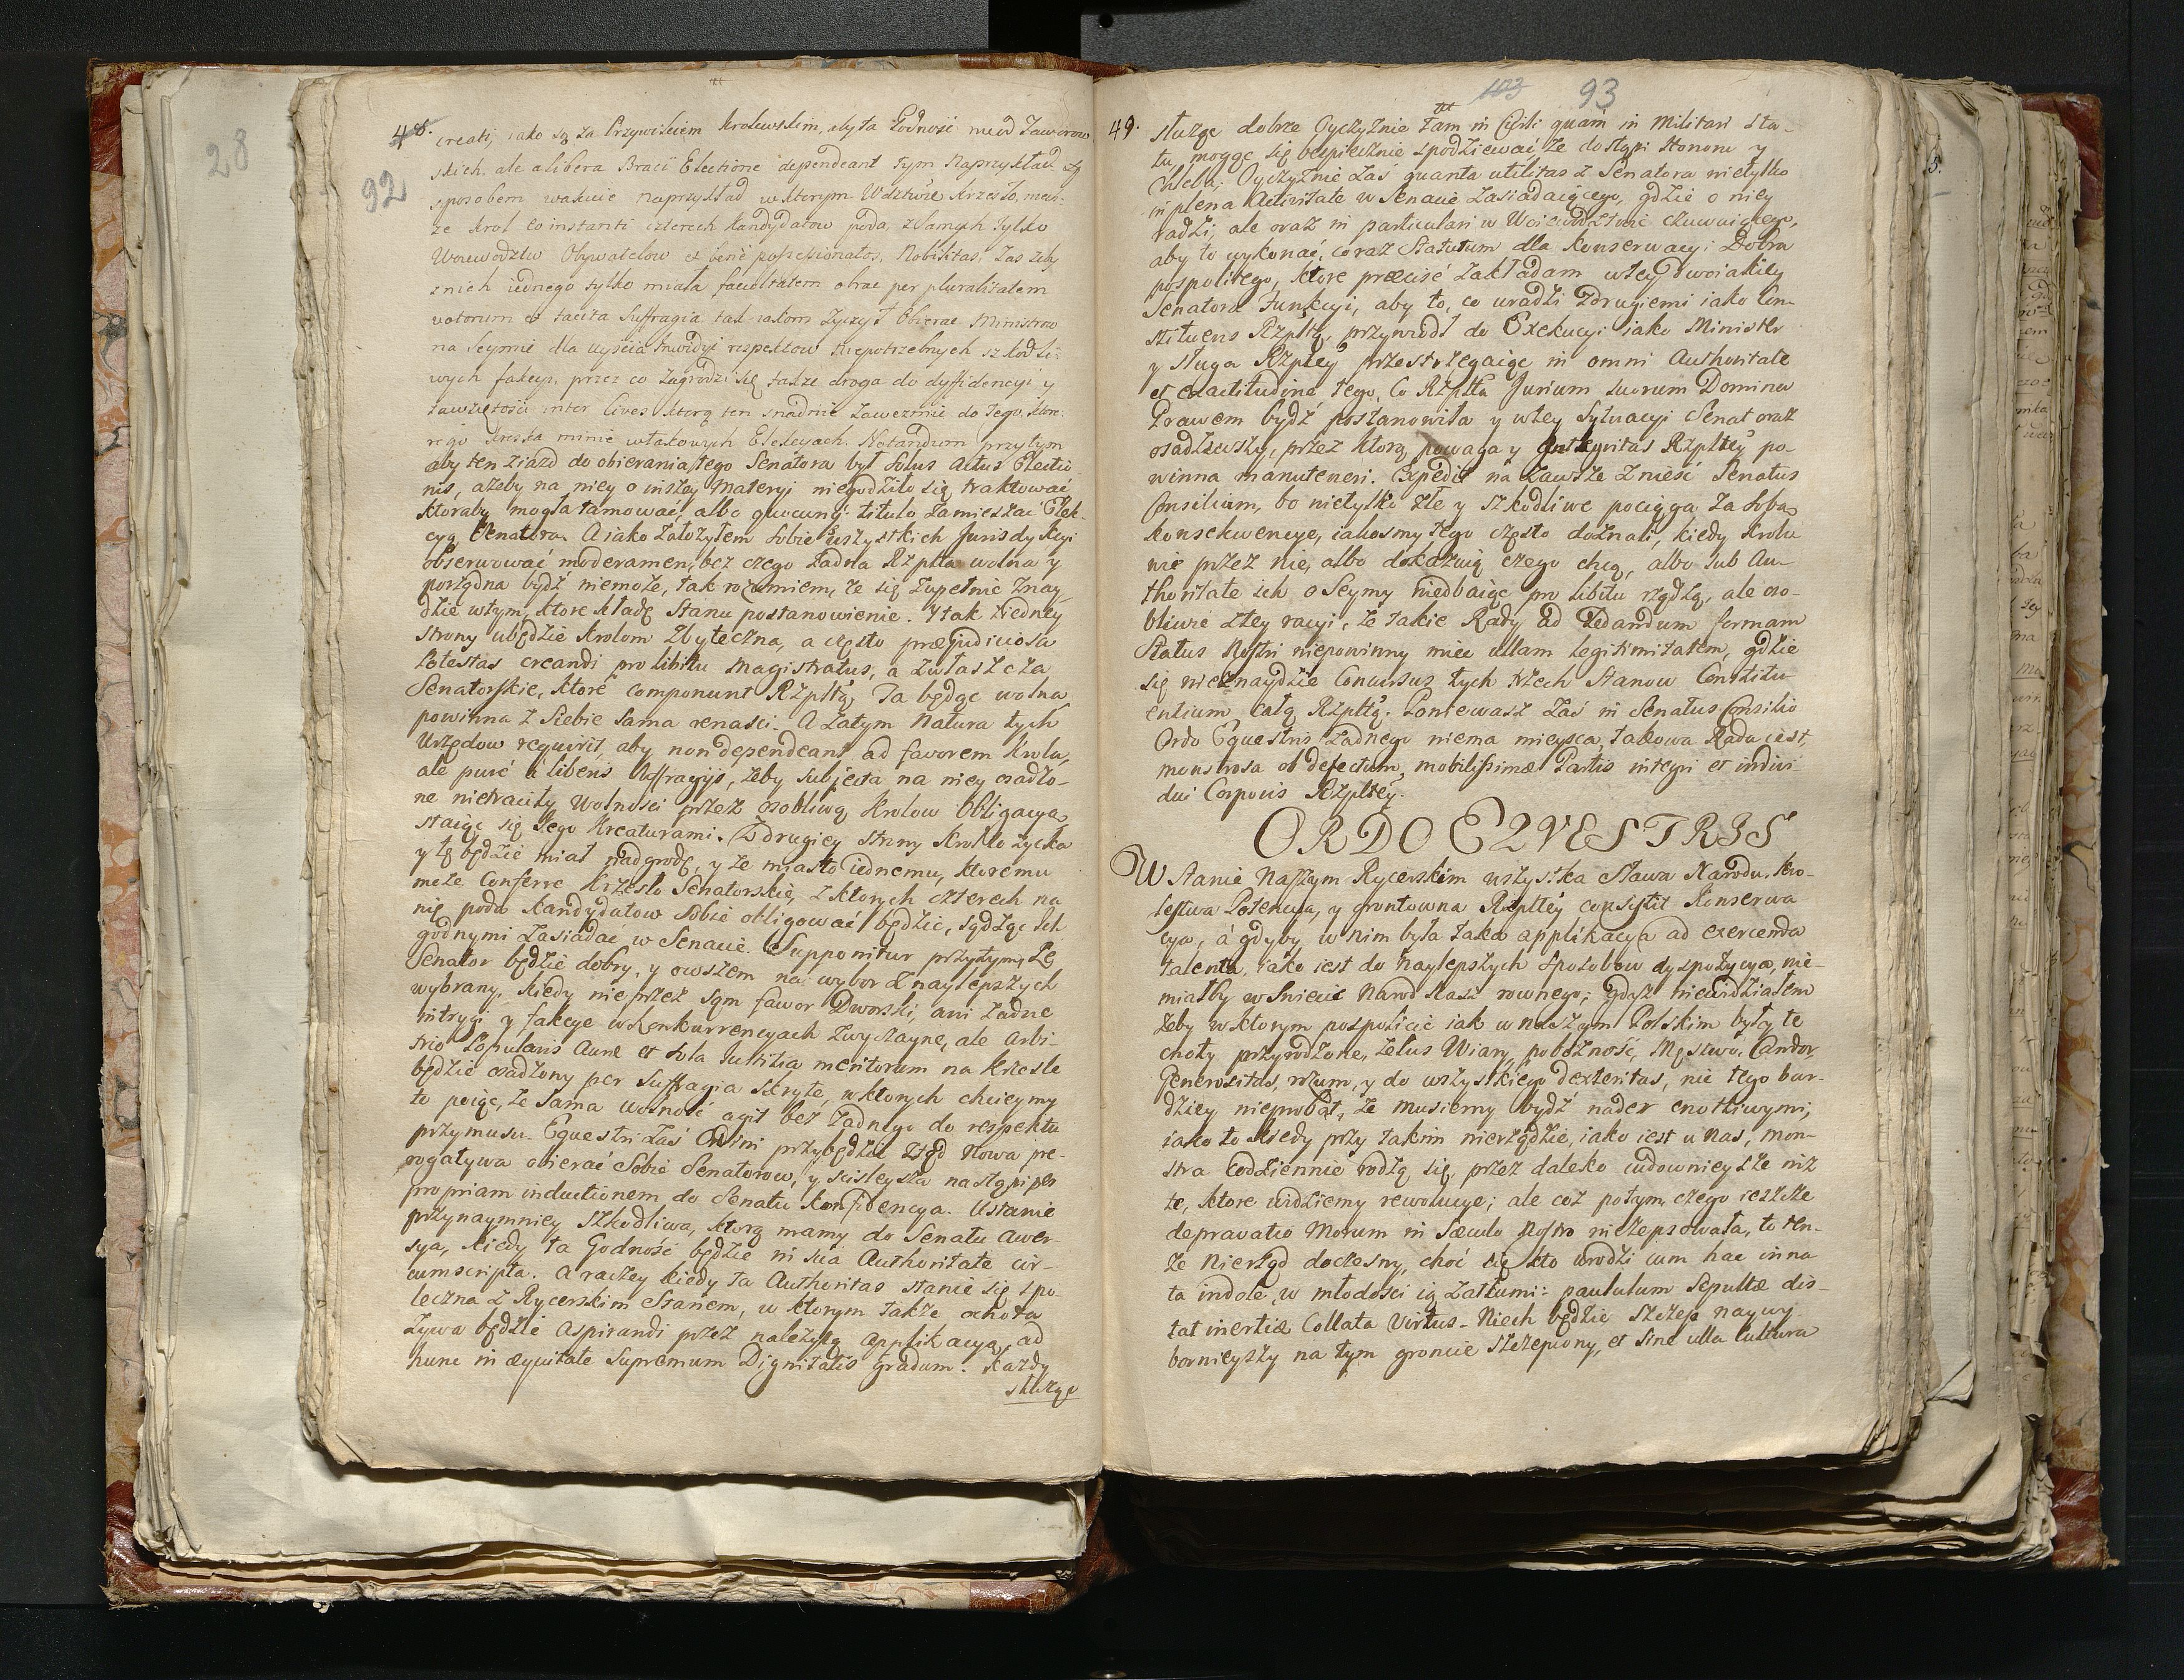 48.
92
creati, iako są za Przywileiem Krolewskim, aby ta Godność
skich, ale a libera Braci Electione dependeant tym Naprzykład
sposobem wakuie naprzykład w ktorym Wdztwie Krzesło,
ze Krol eo instanti czterech Kandydatow poda, z samych tylko
Woiewodztw Obywatelow et bene possessionatos, Nobilitas zas zeby
z nich iednego tylko miała facultatem obrac per pluralitatem
votorum et tacita Suffragia tak iakom zyczył Obierac Ministrow
na Seymie dla uyscia Inwidyi respektow niepotrzebnych szkodli-
wych fakcyi, przez co zagrodzi się także droga do dyffidencyi y
zawziętosci inter Cives ktorą ten snadnie zawezmie do tego, kto-
rego kreska minie w takowych Elekcyach. Notandum przytym
aby ten Ziazd do obierania tego Senatora był Solus Actus Electio-
nis, azeby na niey o inszey Materyi niegodziło się traktować
ktoraby mogła tamować, albo quocunq. titulo zamieszac Elek-
cyą Senatora. A iako założyłem sobie wszystkich Jurisdykcyi
obserwować moderamen, bez czego żadna Rzplta wolna y
porządna bydź niemoże, tak rozumiem, że się zupełnie znay-
dzie w tym, ktore kładę Stanu postanowienie. Y tak z iedney
strony ubędzie Krolom zbyteczna, a często præjudiciosa
Potestas creandi pro libitu Magistratus, a zwłaszcza
Senatorskie, ktore componunt Rzpltą, Ta będąc wolna
powinna z siebie sama renasci. A zatym Natura tych
Urzędow requirit, aby non dependeant ad favorem Krola,
ale purè à liberis Suffragijs, żeby subjecta na niey osadzo-
ne nietraciły Wolności przez osobliwą Krolow Obligacyą
staiąc się Jego Kreaturami. Z drugiey strony Krol
y tę będzie miał nadgrodę, y że miasto iednemu, ktoremu
może Conferre Krzesło Senatorskie, z ktorych czterech na
nię poda Kandydatow sobie obligować będzie, sądząc Ich
godnymi zasiadać w Senacie. Supponitur przytym, że
Senator będzie dobry, y owszem na wybor z naylepszych
wybrany, kiedy nie przez sam fawor Dworski, ani żadne
intrygi y fakcye w Konkurrencyach zwyczayne, ale Arbi-
trio Popularis Auræ et sola Justitia meritorum na Krzesle
będzie osadzony per Suffragia skryte, w ktorych chcieymy
to poiąc, że Sama wolność agit bez żadnego do respektu
przymusu. Equestri zaś Ordini przybędzie ztąd Nowa pre-
rogatywa obierać Sobie Senatorow, y scisleysza nastąpi per
propriam inductionem do Senatu Konfidencya. Ustanie
przynaymniey szkodliwa, ktorą mamy do Senatu Awer-
sya, kiedy ta Godność będzie in sua Authoritate cir-
cumscripta. A raczey kiedy ta Authoritas stanie się spo-
leczna z Rycerskim Stanem, w ktorym także ochota
żywa będzie Aspirandi przez należytą Applikacyą, ad
hunc in æquitate Supremum Dignitatis gradum. Każdy
służąc
49.
103 93
służąc dobrze Oyczyznie tam in Civili quam in Militari Sta-
tu, mogąc się bespiecznie spodziewać że dostąpi Honoru y
Chleba; Oyczyznie zaś quanta utilitas z Senatora nietylko
in plena Activitate w Senacie zasiadaiącego, gdzie o niey
radzi, ale oraz in particulari w Woiewodztwie czuwaiącego,
aby to wykonać, coraz Statutum dla Konserwacyi Dobra
pospolitego, ktore præcisè zakładam w tey dwoiakiey
Senatora Funkcyi, aby to, co uradzi z drugiemi iako Con-
stituens Rzpltą, przywiodł do Exekucyi iako Minister
y sługa Rzpltey przestrzegaiąc in omni Authoritate
et exactitudine tego, Co Rzplta Jurium suorum Domina
Prawem bydź postanowiła y w tey Sytuacyi Senat oraz
osadziwszy, przez ktorą powaga y Integritas Rzpltey po-
winna manuteneri. Expedit na zawsze znieść Senatus
Consilium, bo nietylko złe y szkodliwe pociąga za sobą
konsekwencye, iakosmy tego często doznali, kiedy Krolo-
wie przez nie, albo dokazuią czego chcą, albo sub Au-
thoritate ich o Seymy niedbaiąc pro libitu rządzą, ale oso-
bliwie z tey racyi, że takie Rady ad dandam formam
Status Nostri niepowinny miec ullam legitimitatem, gdzie
się nieznaydzie Concursus tych trzech Stanow Constitu-
entium całą Rzpltą. Poniewasz zaś in Senatus Consilio
Ordo Equestris żadnego niema mieysca, takowa Rada iest,
monstrosa ob defectum, mobilissimæ Partis integri et indivi-
dui Corporis Rzpltey.
ORDO EQVESTRIS
W Stanie Naszym Rycerskim wszystka Sława Narodu, Kro-
lestwa Potencya, y gruntowna Rzpltey consistit Konserwa-
cya, á gdyby w nim była taka applikacya ad exercenda
talenta, iako iest do naylepszych sposobow dyspozycya, nie-
miałby w Swiecie Narod Nasz rownego; gdyż niewidziałem
żeby w ktorym pospolicie iak w naszym Polskim były te
cnoty przyrodzone, Zelus Wiary, pobożność, Męstwo, Candor,
Generositas, rozum, y do wszystkiego dexteritas, nic tego bar-
dziey nieprobat, że musiemy bydź nader cnotliwymi,
iako to kiedy przy takim nierządzie, iako iest u Nas, mon-
stra codziennie rodzą się przez daleko cudownieysze niż
te, ktore widziemy rewolucye; ale coż potym, czego ieszcze
depravatio Morum in Sæculo Nostro niezepsowała, to ten-
że Nierząd doczesny, choć się kto urodzi cum hac inna-
ta indole, w młodości ią zatłumi: paululum sepultæ dis-
tat inertiæ Collata Virtus. Niech będzie szczep naywy-
bornieyszy na tym groncie szczepiony, et sine ulla cultura
5.
28